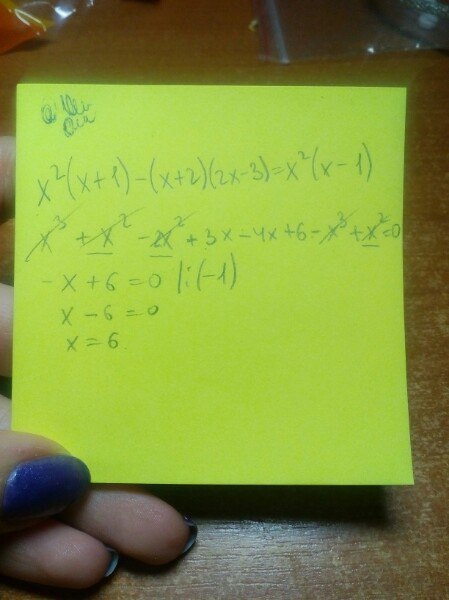 x²(x+1)-(x+2)(2x-3)=x²(x-1)
x³+x²-2x²+3x-4x+6-x³+x²=0
-x+6=0 |:(-1)
x-6=0
x=6.